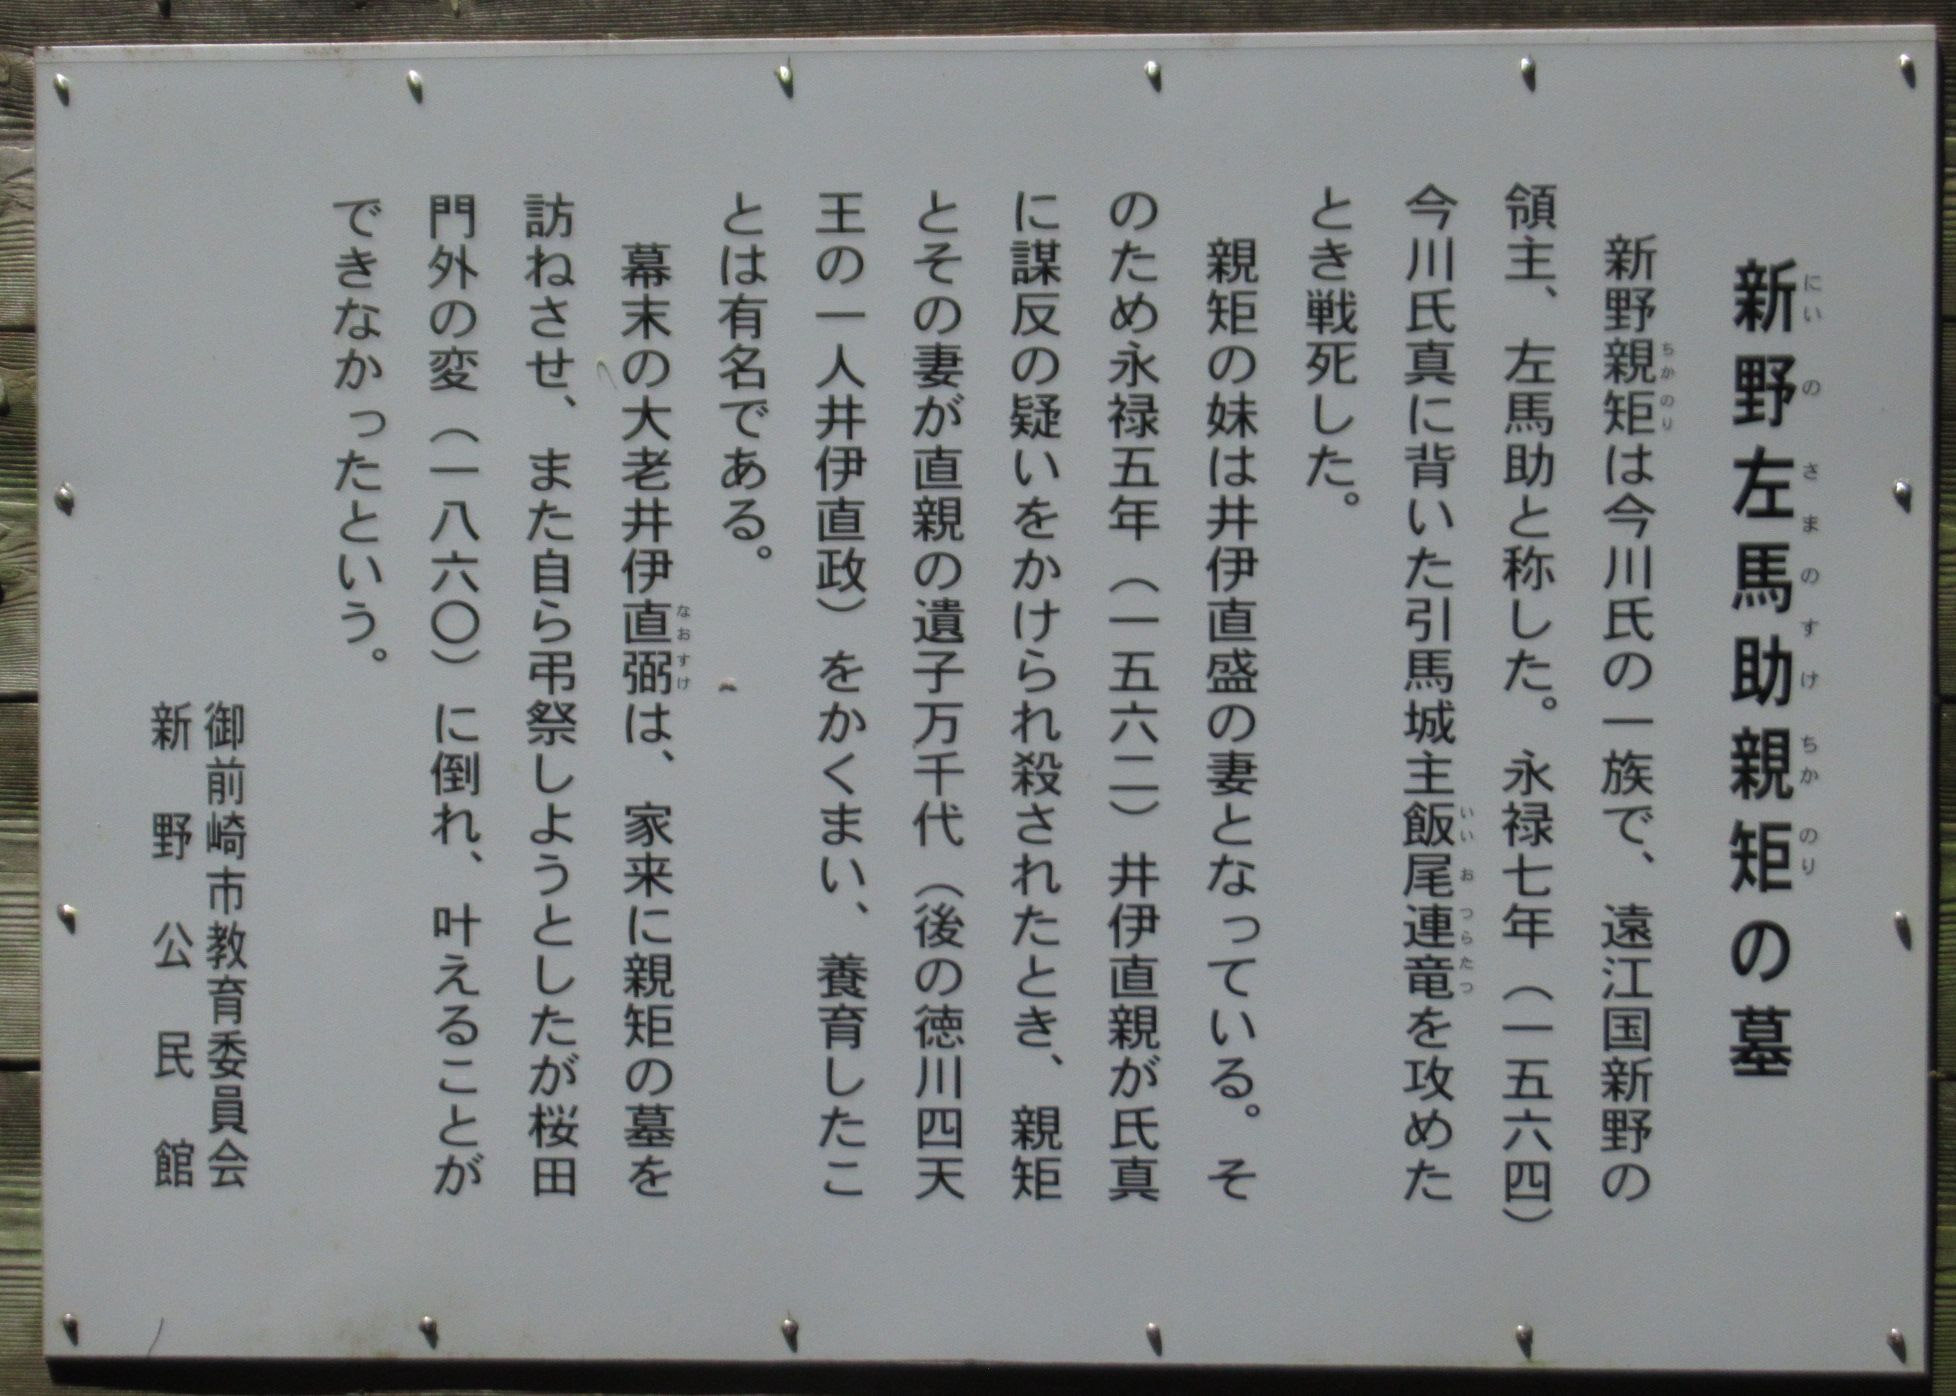 新野左馬助親矩の墓
新野親矩は今川氏の一族で、遠江国新野の
領主、左馬助と称した。永禄七年（一五六四）
今川氏真に背いた引馬城主飯尾連竜を攻めた
とき戦死した。
親矩の妹は井伊直盛の妻となっている。そ
のため永禄五年（一五六二）井伊直親が氏真
に謀反の疑いをかけられ殺されたとき、親矩
とその妻が直親の遺子万千代（後の徳川四天
王の一人井伊直政）をかくまい、養育したこ
とは有名である。
幕末の大老井伊直弼は、家来に親矩の墓を
訪ねさせ、また自ら弔祭しようとしたが桜田
門外の変（一八六〇）に倒れ、叶えることが
できなかったという。
御前崎市教育委員会
新野公民館